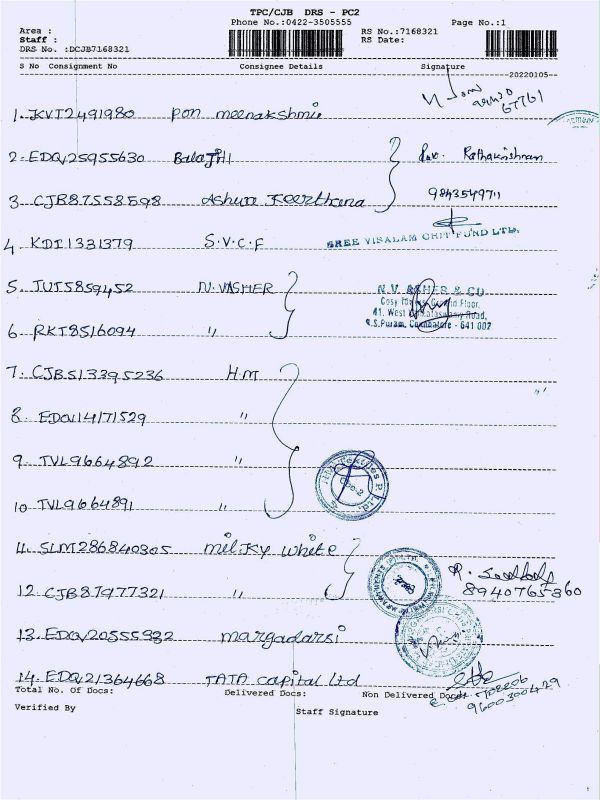 TPC/CJB DRS - PC2
Phone No.:0422-3505555
Page No.:1
Area :
Staff :
DRS No. :DCJB7168321
RS No.:7168321
RS Date:
S No Consignment No Consignee Details Signature
20220105
1. KVT2491980 Pon meenakshmi
67761
2. EDQ25955630 Balaji
3. CJB87558598 Ashwa Keerthana
9843549711
4 KDI1331379 S.V.C.F
SREE VISALAM CHIT FUND LTD.
5. TUT5859452 N.V.ASHER
N.V. ASHER & CO
6. RKT8516094 "
41. West Road,
R.S.Puram, Coimbatore - 641 002
7. CJB513395236 H.M
8. EDQ114171529 "
9. TVL9664892 "
10. TVL9664891 "
11. SLM286840305 Milky white
12. CJB87977321 "
8940765360
13. EDQ20555932 margadarsi
14. EDQ21364668 TATA Capital Ltd
9600300429
Total No. Of Docs: Delivered Docs: Non Delivered Docs:
Verified By
Staff Signature